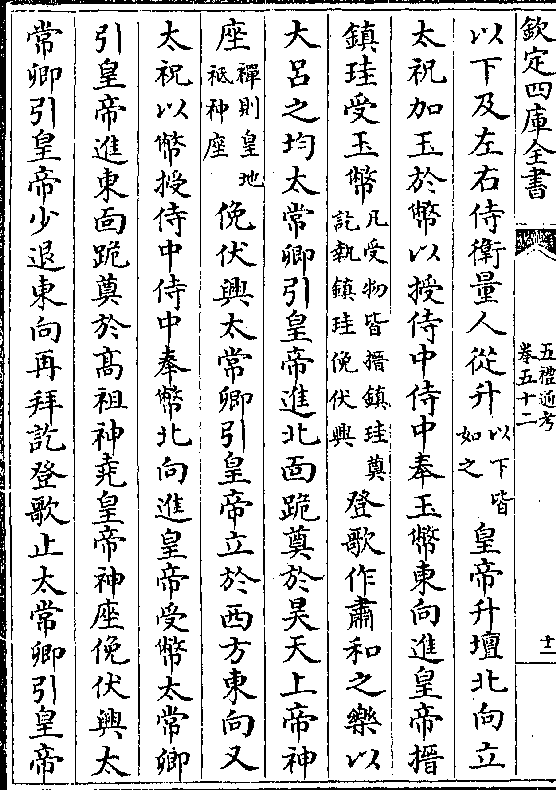 欽定四庫全書
五禮通考
卷五十二
十一
以下及左右侍衛量人從升以下皆如之皇帝升壇北向立
太祝加玉於幣以授侍中侍中奉玉幣東向進皇帝搢
鎮珪受玉幣凡受物皆搢鎮珪奠訖執鎮珪俛伏興登歌作肅和之樂以
大呂之均太常卿引皇帝進北面跪奠於昊天上帝神
座禪則皇地祗神座俛伏興太常卿引皇帝立於西方東向又
太祝以幣授侍中侍中奉幣北向進皇帝受幣太常卿
引皇帝進東面跪奠於高祖神堯皇帝神座俛伏興太
常卿引皇帝少退東向再拜訖登歌止太常卿引皇帝